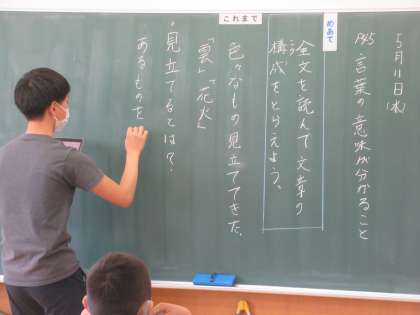 5月11日(水)
P45 言葉の意味が分かること
めあて
全文を読んで文章の
構成をとらえよう。
これまで
色々なもの見立ててきた。
「雲」「花火」
・見立てるとは?
あるものを